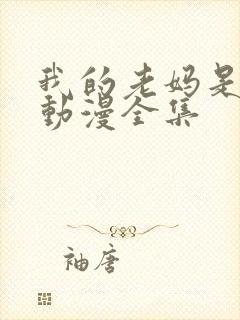 我的老妈是
動漫全集
袖唐